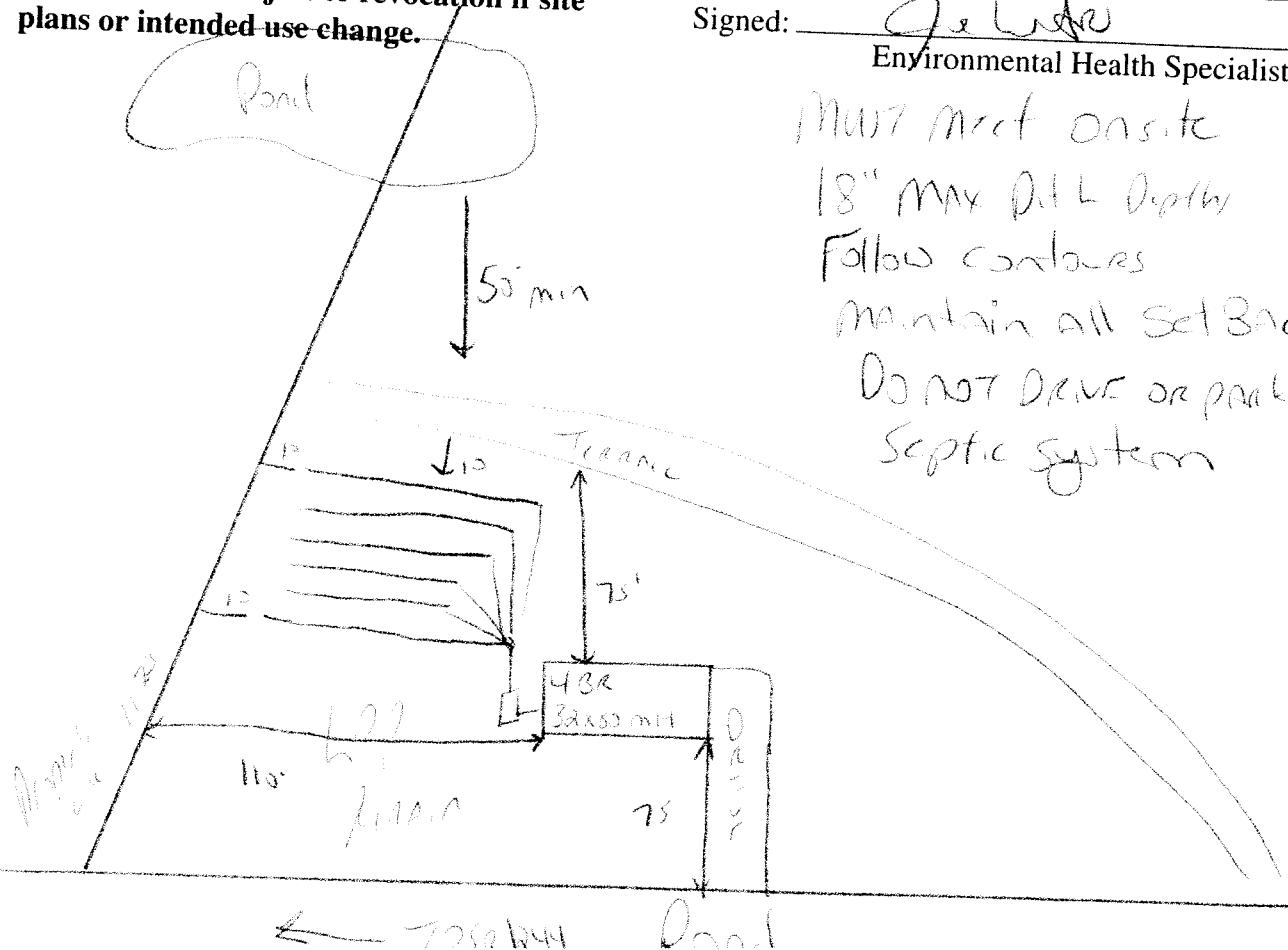 plans or intended use change.
Signed:
Environmental Health Specialist
Pond
Must meet onsite
18" MAX Ditch Depth
Follow contours
Maintain All Set Bac
Do NOT DRIVE OR park
Septic System
50' min
Terrace
10
10
10
75'
4BR
32x50 MH
Drive
110'
75